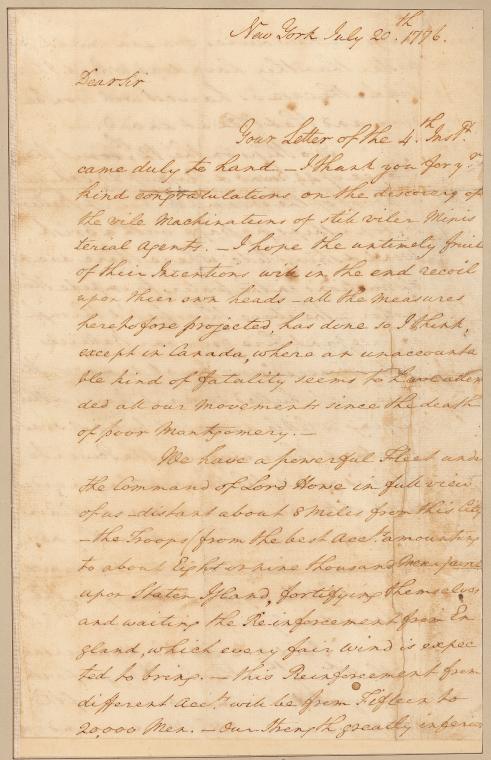 New York July 20.th 1776.
Dear Sir
Your Letter of the 4.th Inst.t
came duly to hand – I thank you for y.r
kind congratulations on the discovery of
the vile Machinations of still viler Minis
terial Agents. – I hope the untimely fruit
of their Intentions will in the end recoil
upon their own heads – all the measures
heretofore projected, has done so I think,
except in Canada, where an unaccounta
ble kind of fatality seems to have atten
ded all our movements since the death
of poor Montgomery. –
We have a powerful Fleet unde
the Command of Lord Howe in full view
of us – distant about 8 Miles from this City
– the Troops (from the best Acc.ts amounting
to about Eight or nine thousand Men) are
upon Staten Island, fortifying themselves
and waiting the Re-inforcement from En
gland, which every fair wind is expec
ted to bring. – this Reinforcement from
different Acc.ts will be from Fifteen to
20,000 Men. – Our Strength greatly inferior